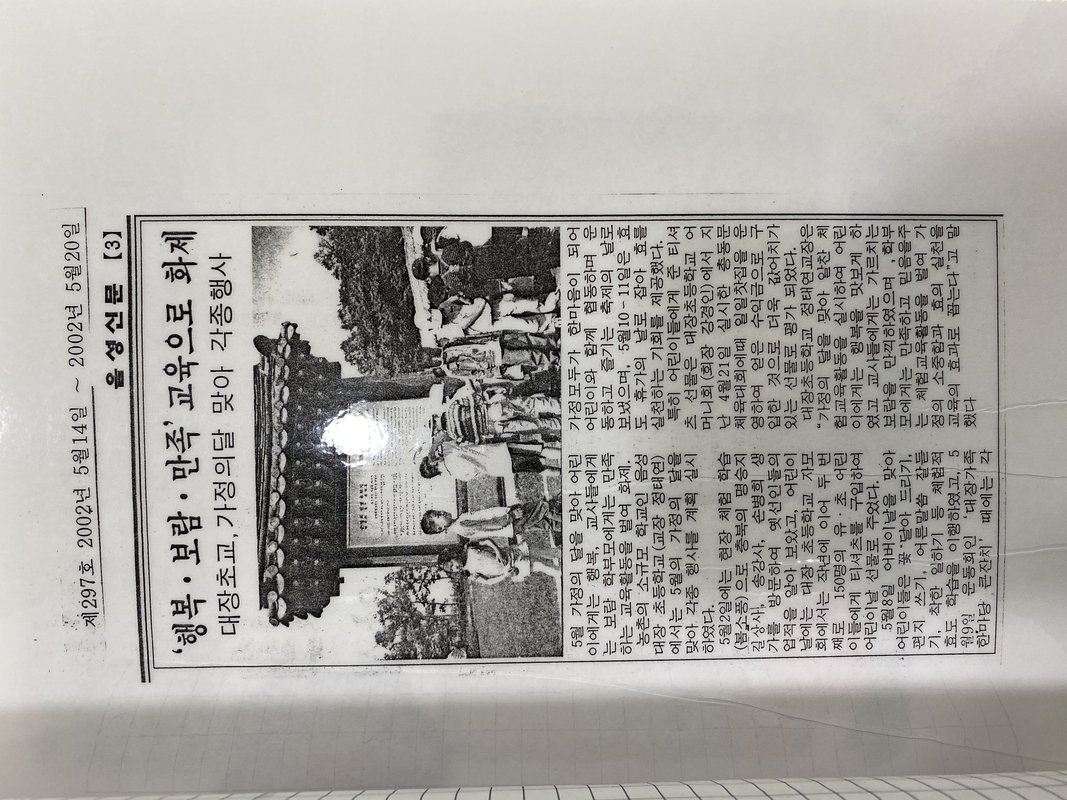 제297호 2002년 5월14일 ~ 2002년 5월20일
음성신문 [3]
‘행복·보람·만족’ 교육으로 화제
대장초교, 가정의달 맞아 각종행사
5월 가정의 달을 맞아 어린
이에게는 행복, 교사들에게
는 보람 학부모에게는 만족
하는 교육활동을 벌여 화제.
농촌의 소규모 학교인 음성
대장 초등학교(교장 정태연)
에서는 5월의 가정의 달을
맞아 각종 행사를 계획 실시
하였다.
5월2일에는 현장 체험 학습
(봄소풍)으로 충북의 명승지
길상사, 송강사, 손병희 생
가를 방문하여 옛선인들의
업적을 알아 보았고, 어린이
날에는 대장 초등학교 자모
회에서는 작년에 이어 두 번
째로 150명의 유·초 어린
이들에게 티셔츠를 구입하여
어린이날 선물로 주었다.
5월8일 어버이날을 맞아
어린이들은 꽃 달아 드리기,
편지 쓰기, 어른말씀 잘듣
기, 착한 일하기 등 체험적
효도 학습을 이행하였고, 5
월9일 운동회인 ‘대장가족
한마당 큰잔치’ 때에는 각
가정모두가 한마음이 되어
어린이와 함께 협동하며 운
동하고 즐기는 축제의 날로
보냈으며, 5월10-11일은 효
도 휴가의 날로 잡아 효를
실천하는 기회를 제공했다.
특히 어린이들에게 준 티셔
츠 선물은 대장초등학교 어
머니회(회장 강경인)에서 지
난 4월21 실시한 총동문
체육대회에때 일일찻집을 운
영하여 얻은 수익금으로 구
입한 것으로 더욱 값어치가
있는 선물로 평가 되었다.
대장초등학교 정태연교장은
“가정의 달을 맞아 알찬 체
험교육활동을 실시하여 어린
이에게는 행복을 맛보게 하
였고 교사들에게는 가르치는
보람을 만끽하였으며 학부
모에게는 만족하고 믿음을주
는 체험교육활동을 벌여 가
정의 소중함과 효의 실천을
교육의 효과로 꼽는다”고 말
했다